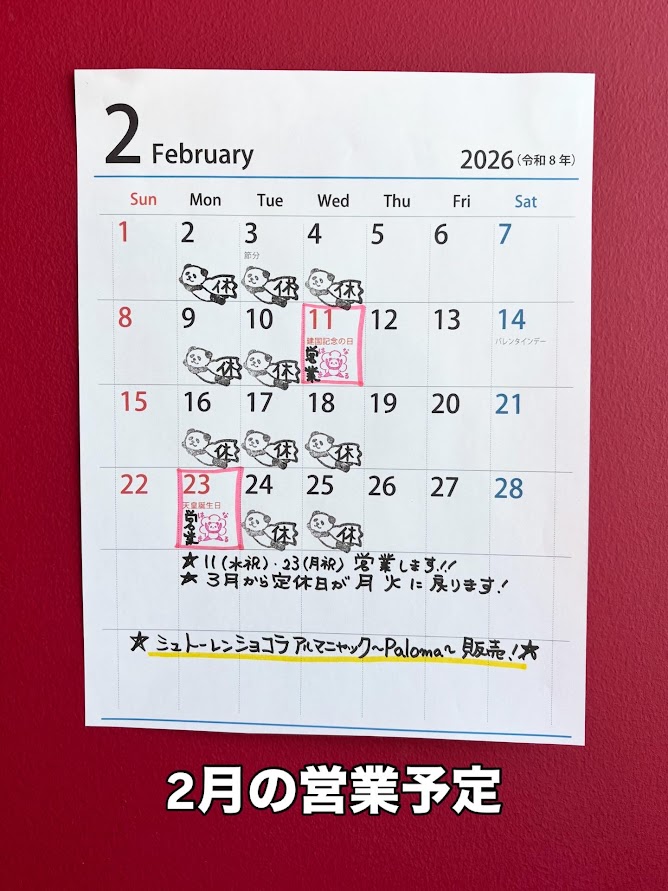 2 February 2026 (令和8年)
Sun Mon Tue Wed Thu Fri Sat
1 2 3 4 5 6 7
節分
休 休 休
8 9 10 11 12 13 14
建国記念の日 バレンタインデー
休 休 営業 はなまる
15 16 17 18 19 20 21
休 休 休
22 23 24 25 26 27 28
天皇誕生日
営業 はなまる 休 休
★11(水祝)・23(月祝) 営業します!!!
★3月から定休日が月火に戻ります!
★シュトーレンショコラアルマニャック〜Paloma〜販売!★
2月の営業予定